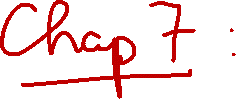 Chap 7 :